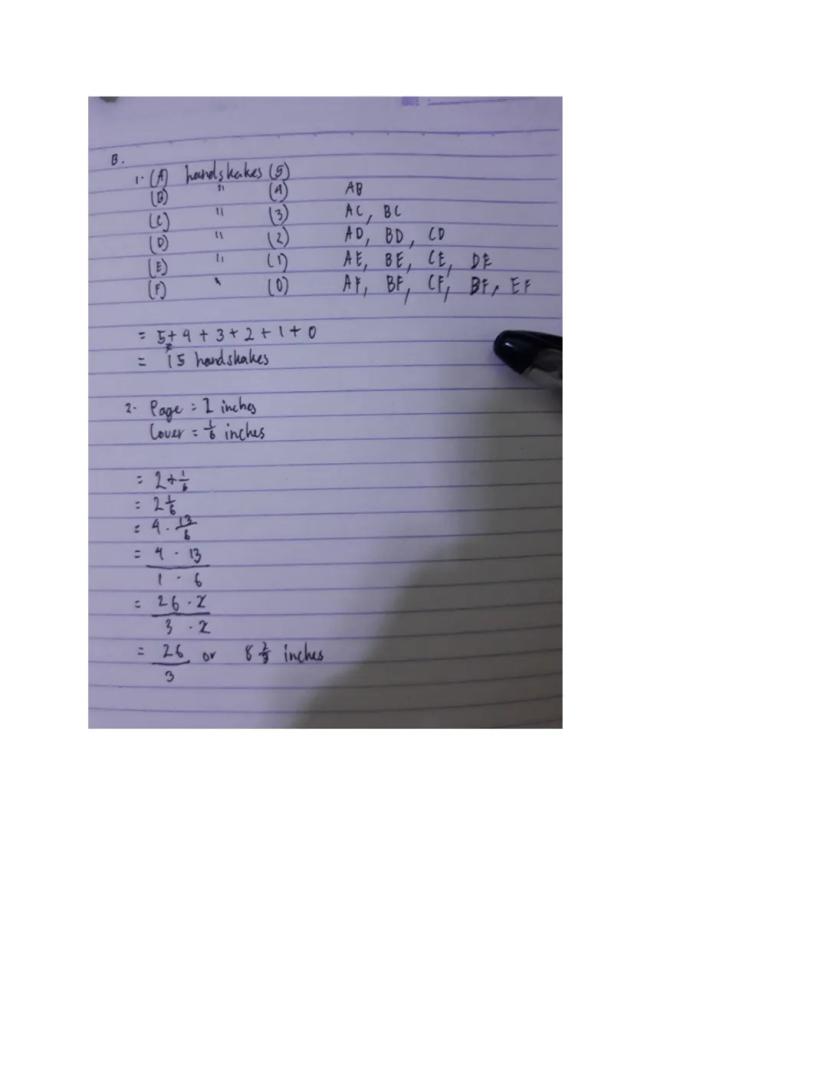 B.
1. (A) handshakes (5)
(B) " (4) AB
(C) " (3) AC, BC
(D) " (2) AD, BD, CD
(E) " (1) AE, BE, CE, DE
(F) " (0) AF, BF, CF, BF, EF
= 5+4+3+2+1+0
= 15 handshakes
2. Page = 2 inches
Cover = 1/6 inches
= 2+1/6
= 2 1/6
= 4 · 13/6
= 4 · 13
1 · 6
= 26 · 2
3 · 2
= 26 or 8 2/3 inches
3